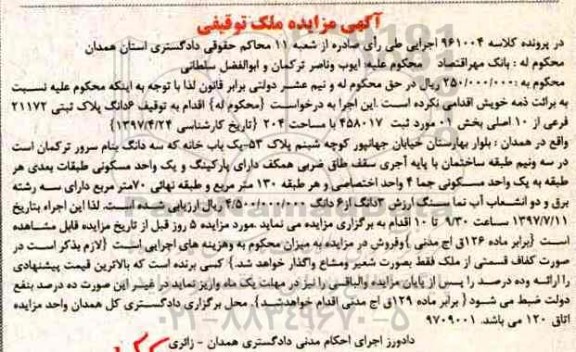 آگهی مزایده ملک توقیفی
در پرونده کلاسه ۹۶۱۰۰۴ اجرایی طی رأی صادره از شعبه ۱۱ محاکم حقوقی دادگستری استان همدان
محکوم له : بانک مهراقتصاد   محکوم علیه: ایوب وناصر ترکمان و ابوالفضل سلطانی
محکوم به :۲۵۰/۰۰۰/۰۰۰ ریال در حق محکوم له و نیم عشر دولتی برابر قانون لذا با توجه به اینکه محکوم علیه نسبت
به برائت ذمه خویش اقدامی نکرده است .این اجرا به درخواست {محکوم له} اقدام به توقیف ۶دانگ پلاک ثبتی ۲۱۱۷۲
فرعی از ۱۰.اصلی بخش ۰۱ مورد ثبت ۴۵۸۰۱۷ با مساحت ۲۰۴ {تاریخ کارشناسی ۱۳۹۷/۴/۲۴}
واقع در همدان : بلوار بهارستان خیابان جهانپور کوچه شبنم پلاک ۵۳-یک باب خانه که سه دانگ بنام سرور ترکمان است
در سه ونیم طبقه ساختمان با پایه آجری سقف طاق ضربی همکف دارای پارکینگ و یک واحد مسکونی طبقات بعدی هر
طبقه به یک واحد مسکونی جما ۴ واحد اختصاصی و هر طبقه ۱۳۰ متر مربع و طبقه نهائی ۷۰متر مربع دارای سه رشته
برق و دو انشعاب آب نما سنگ ارزش ۳دانگ از۶ دانگ ۴/۵۰۰/۰۰۰/۰۰۰ ریال ارزیابی شده است. لذا این اجراء بتاریخ
۱۳۹۷/۷/۱۱ ساعت ۹/۳۰ تا ۱۰ اقدام به برگزاری مزایده می نماید .مورد مزایده ۵ روز قبل از تاریخ مزایده قابل مشاهده
است {برابر ماده ۱۲۶ق اج مدنی }وفروش در مزایده به میزان محکوم به وهزینه های اجرایی است {لازم بذکر است در
صورت کفاف قسمتی از ملک فقط بصورت شعیر ومشاع واگذار خواهد شد.} کسی برنده است که بالاترین قیمت پیشنهادی
را ارائه وده درصد را پس از پایان مزایده والباقی را نیز در مهلت یک ماه واریز نماید در غیر این صورت ده درصد بنفع
دولت ضبط می شود { برابر ماده ۱۲۹ق اج مدنی اقدام خواهدشد.}. محل برگزاری دادگستری کل همدان واحد مزایده
اتاق ۱۲۰ می باشد. ۹۷۰۹۰۰۱
۰۲۱-۸۸۳۴۹۶۷۰-۵
دادورز اجرای احکام مدنی دادگستری همدان - زائری